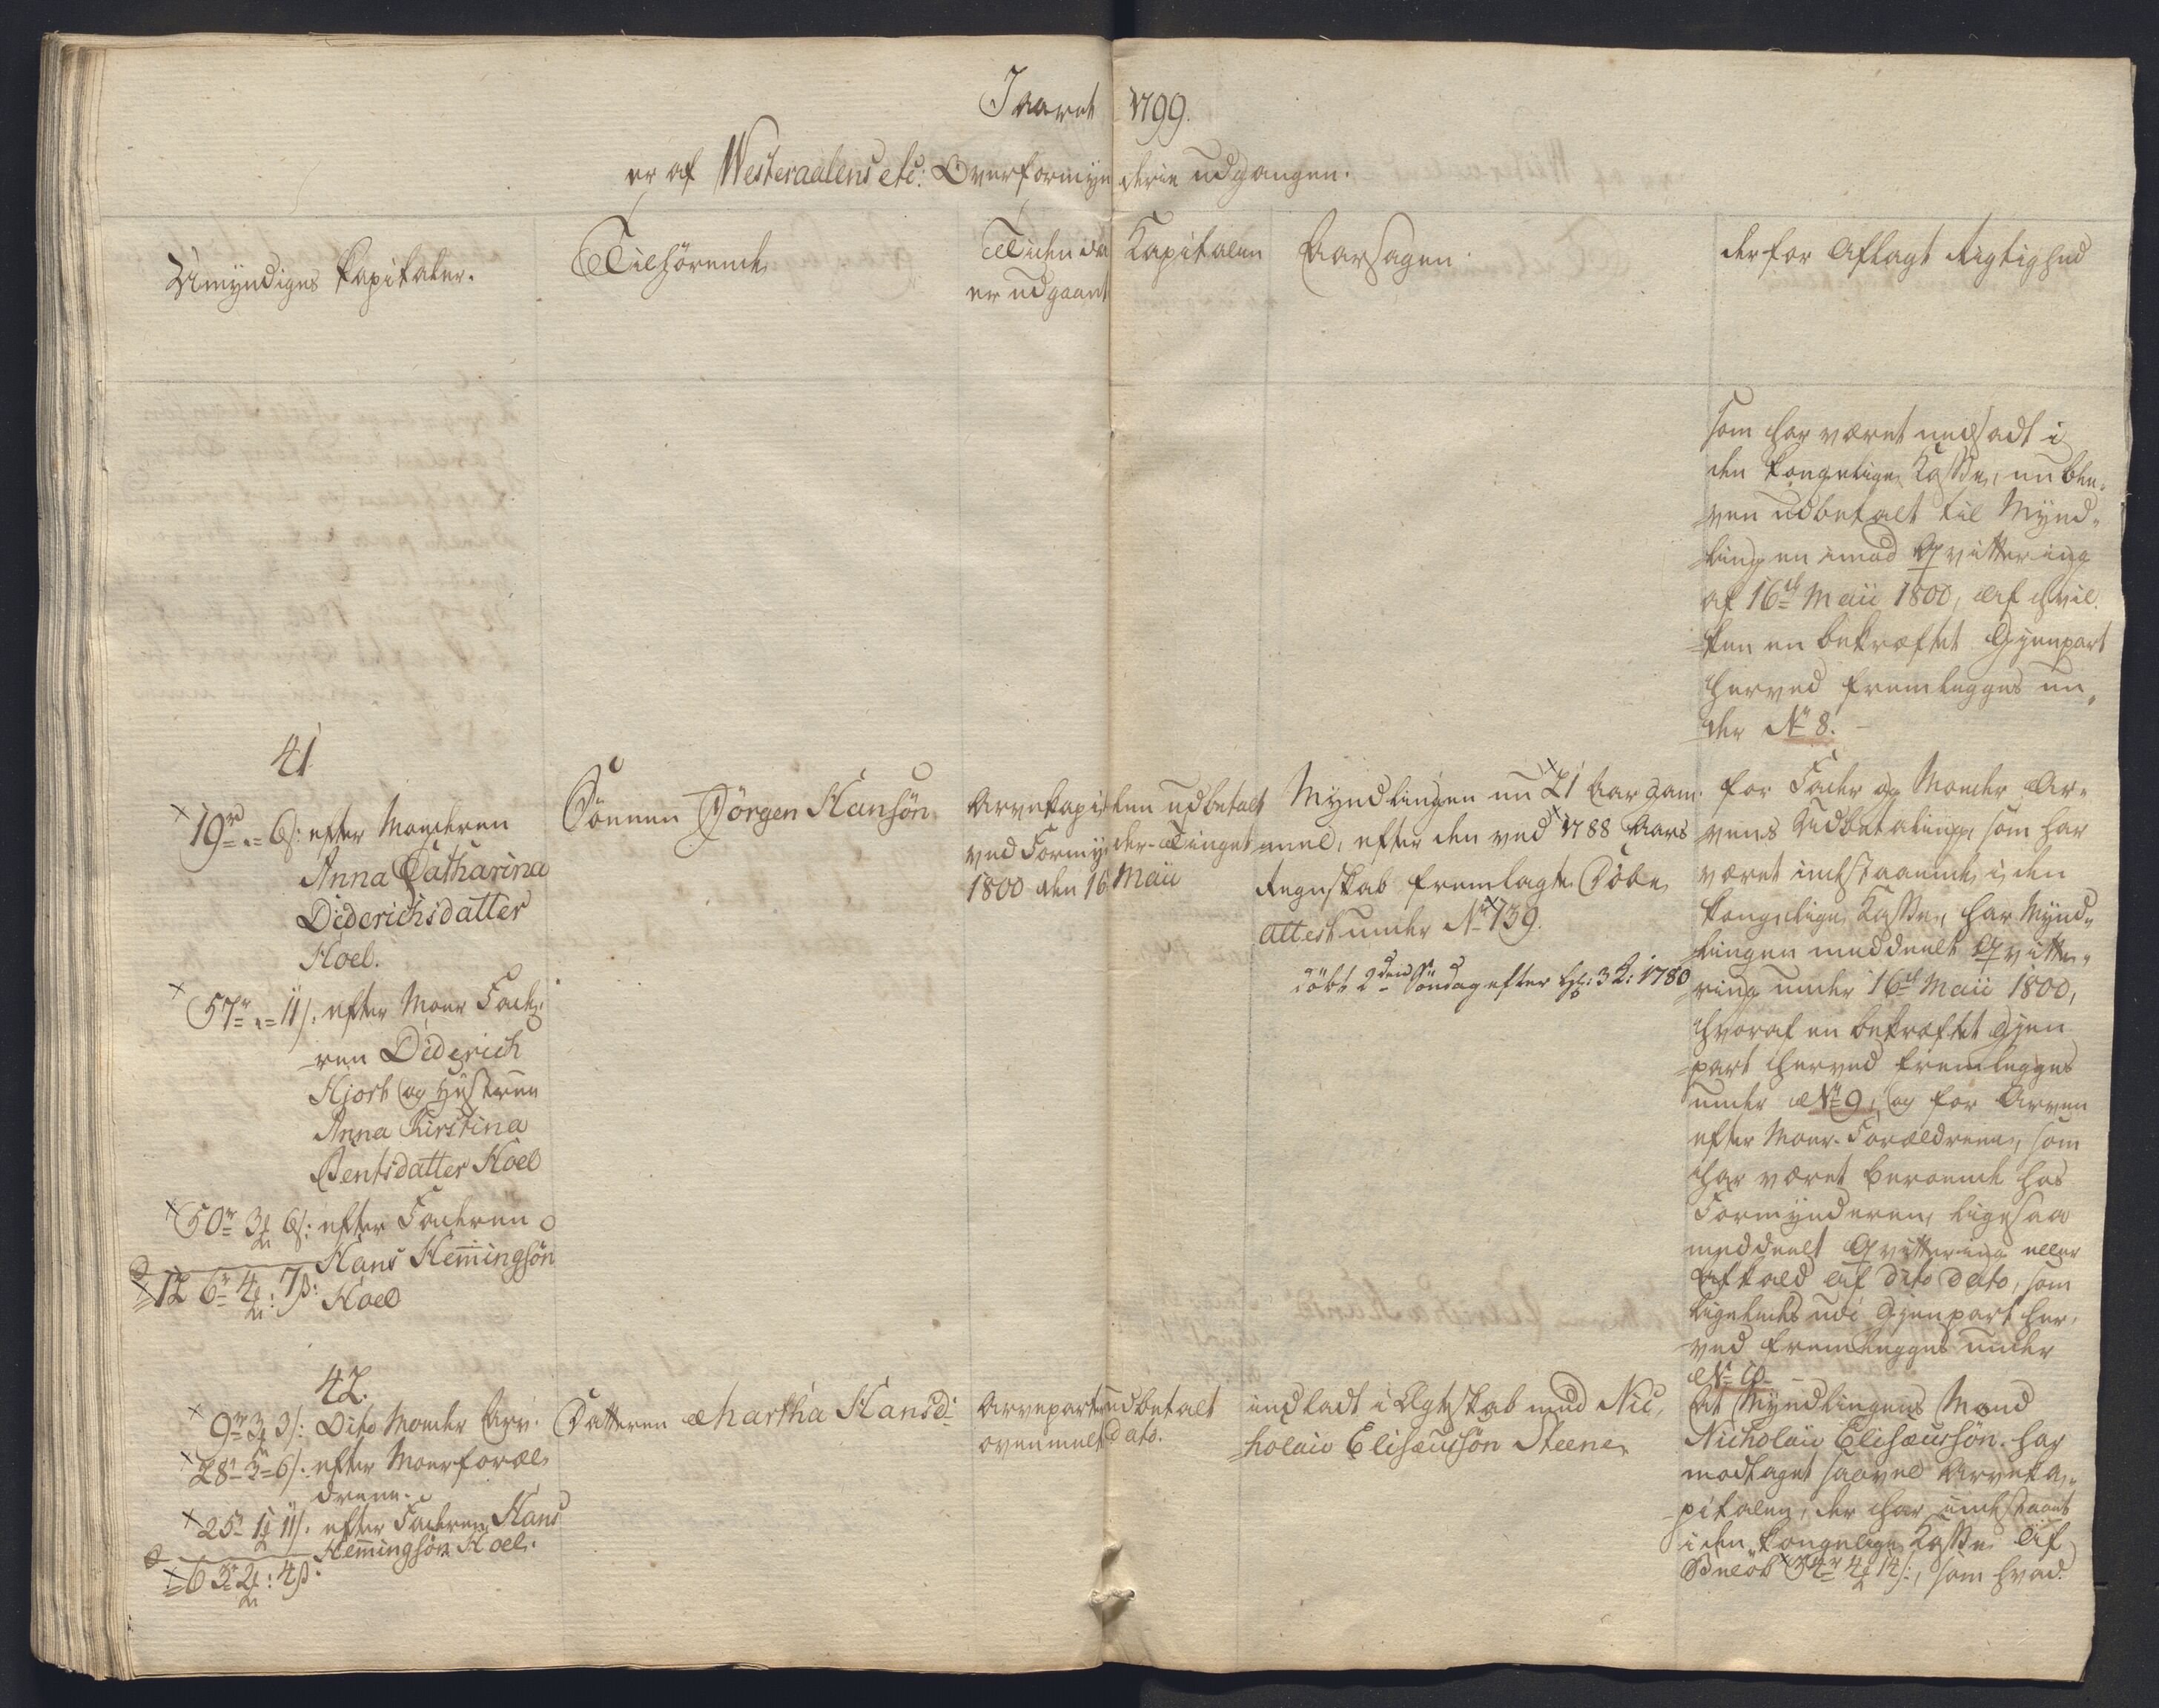 I aaret 1799.
er af Westeraalens etc: Overformynderie udgangen.
Umyndiges Kapitaler.
Tilhörende
Tiiden da Kapitalen
er udgaaet
Aarsagen
derfor Aflagt Rigtighed
som har været nedsadt i
den kongelige Kasse, nu ble-
ven udbetalt til Mynd-
lingen imod Qvittering
af 16de Maii 1800, Af hvil-
ken en bekræftet Gjenpart
herved fremlegges un-
der No 8. -
41
19rd " 6s: efter Moderen
Anna Catharina
Diderichsdatter
Hoel.
57rd " 11s: efter Moer Fade-
ren Diderich
Hjort og Hustrue
Anna Kirstina
Bentsdatter Hoel
50rd 3 6s: efter Faderen
Hans Hemingsön
Hoel
126rd 4: 7s:
Sönnen Jörgen Hansön
Arvekapitalen udbetalt
ved Formynder-Tinget
1800 den 16 Maii
Myndlingen nu 21 Aar gam-
mel, efter den ved 1788 Aars
Regnskab fremlagte Döbe
attest under No 739.
döbt 2den Söndag efter hel: 3 K: 1780
for Fader og Moder Ar-
vens Udbetaling, som har
været indestaaende i den
kongelige Kasse, har Mynd-
lingen meddeelt Qvitte-
ring under 16de Maii 1800,
hvoraf en bekræftet Gjen
part herved fremlegges
under No 9, og for Arven
efter Moer-Forældrene, som
har været beroende hos
Formynderen, ligesaa
meddeelt Qvittering eller
Afkald af dito dato, som
ligeledes udi Gjenpart her-
ved fremlegges under
No 10 -
42.
9rd 3 3s: Dito Moder Arv.
28rd 3 " 6s: efter Moerforæl-
drene.
25rd 1 11s. efter Faderen Hans
Hemingsön Hoel.
63rd 2: 4s:
Datteren Martha Hansd:
Arveparten udbetalt
ovenmelt dato.
indladt i Ægteskab med Nic-
holaie Elisæussön Steene
At Myndlingens Mand
Nicholaie Elisæussön har
modtaget saavel Arveka-
pitalen, der har indestaaet
i den kongelige Kasse Af
Belöb 34rd 4 14s:, som hvad